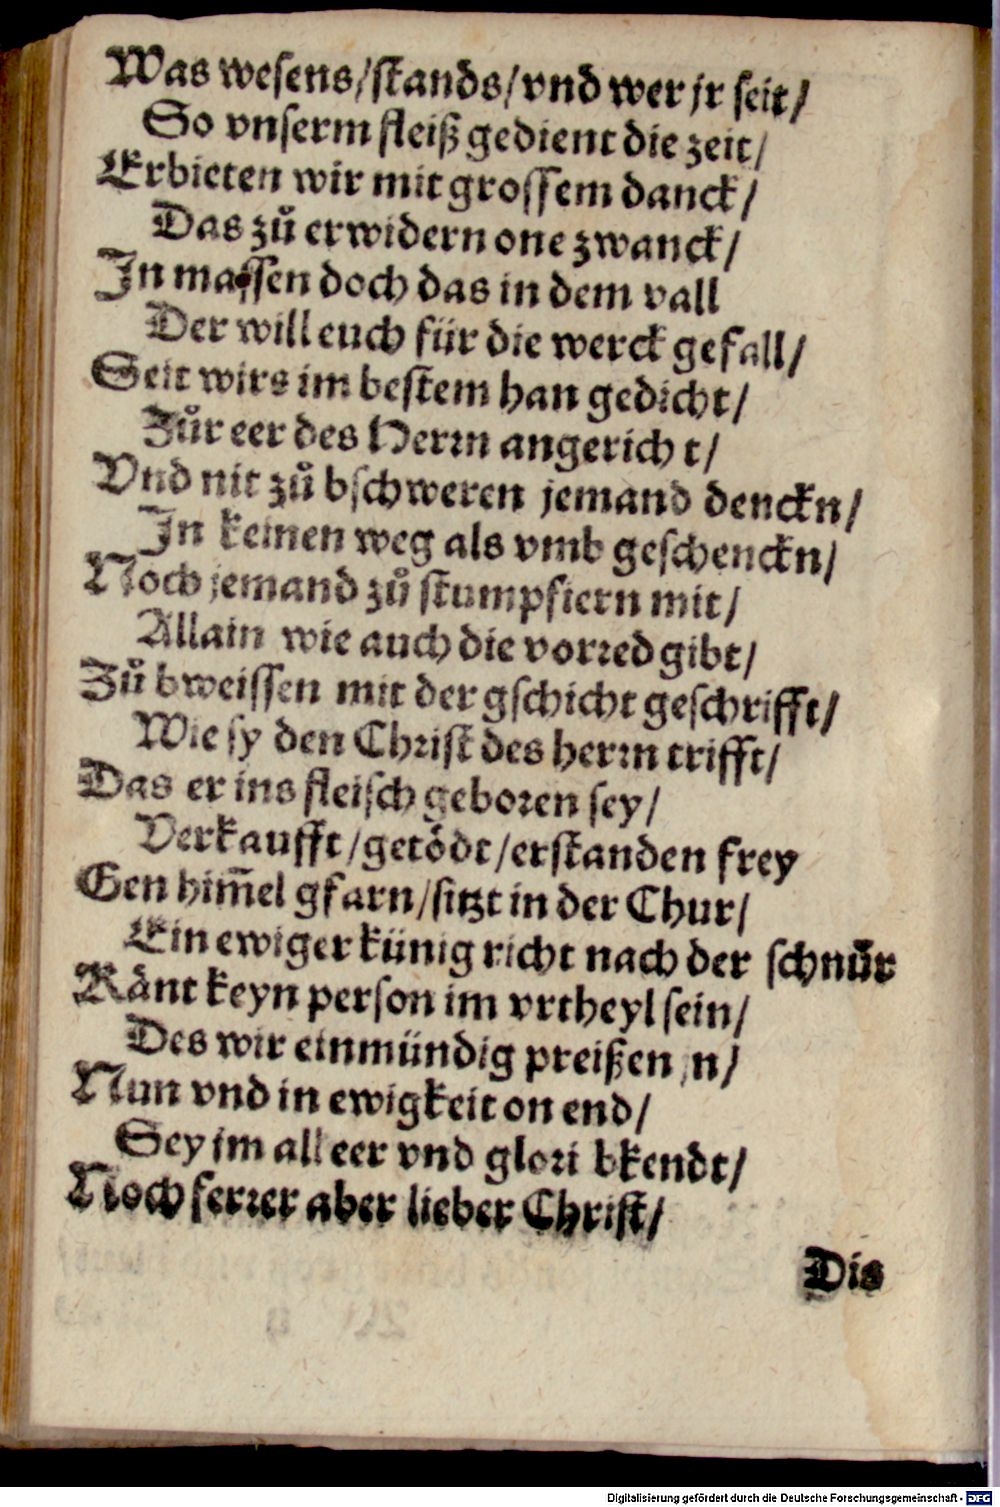 Was wesens/stands/vnd wer jr seit/
So vnserm fleiß gedient die zeit/
Erbieten wir mit grossem danck/
Das zů erwidern one zwanck/
In massen doch das in dem vall
Der will euch für die werck gefall/
Seit wirs im bestem han gedicht/
Zůr eer des Herrn angericht/
Vnd nit zů bschweren jemand denckn/
In keinen weg als vmb geschenckn/
Noch jemand zů stumpfiern mit/
Allain wie auch die vorred gibt/
Zů bweissen mit der gschicht geschrifft/
Wie sy den Christ des herrn trifft/
Das er ins fleisch geboren sey/
Verkaufft/getödt/erstanden frey
Gen him̃el gfarn/sitzt in der Chur/
Ein ewiger künig richt nach der schnůr
Känt keyn person im vrtheyl sein/
Des wir einmündig preißen jn/
Nun vnd in ewigkeit on end/
Sey jm all eer vnd glori bkendt/
Noch ferrer aber lieber Christ/
Dis
Digitalisierung gefördert durch die Deutsche Forschungsgemeinschaft - DFG